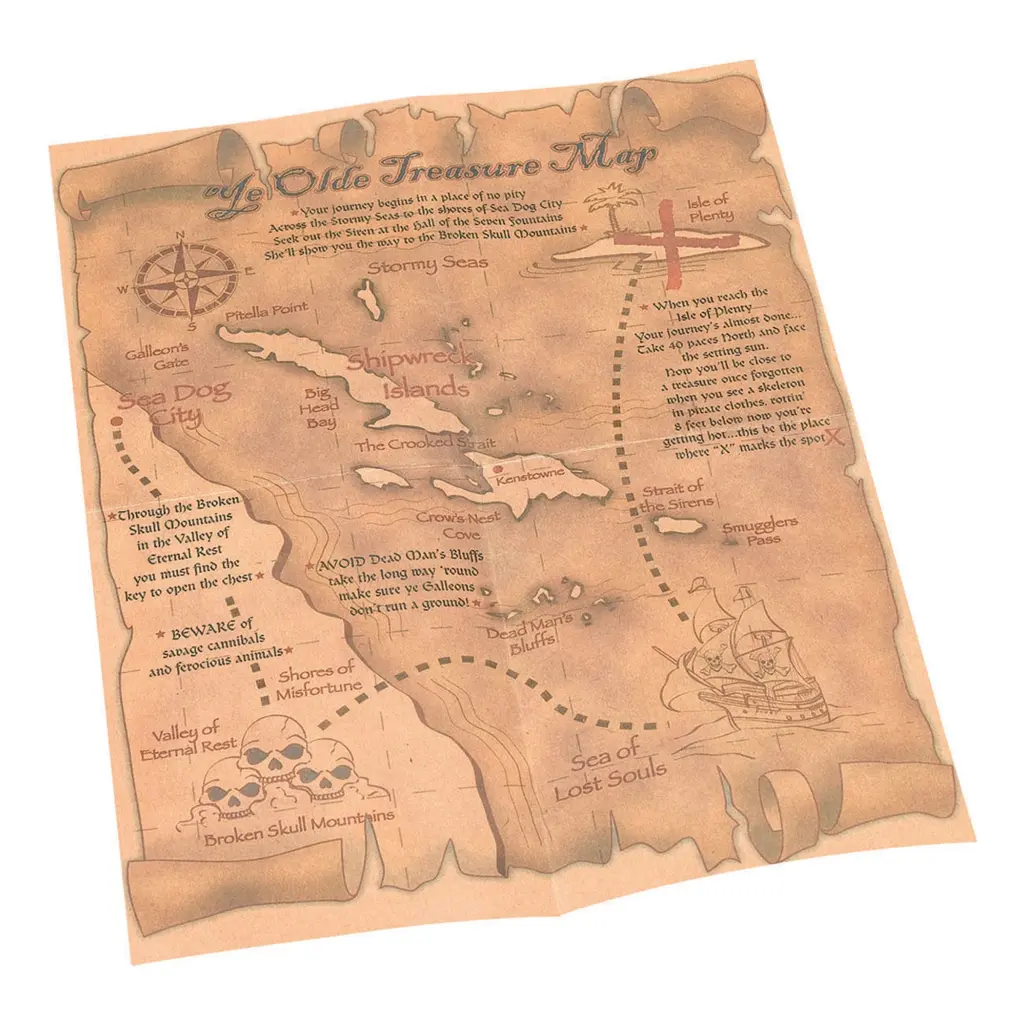 Ye Olde Treasure Map
★Your journey begins in a place of no pity
Across the Stormy Seas to the shores of Sea Dog City
Seek out the Siren at the Hall of the Seven Fountains
She'll show you the way to the Broken Skull Mountains★
Isle of
Plenty
N
W
E
S
Stormy Seas
Pitella Point
Galleon's
Gate
Sea Dog
City
Shipwreck
Islands
Big
Head
Bay
★ When you reach the
Isle of Plenty—
Your journey's almost done...
Take 40 paces North and face
the setting sun.
Now you'll be close to
a treasure once forgotten
when you see a skeleton
in pirate clothes, rottin'
8 feet below now you're
getting hot...this be the place
where "X" marks the spot X
The Crooked Strait
Kenstowne
Crow's Nest
Cove
Strait of
the Sirens
Smugglers
Pass
★Through the Broken
Skull Mountains
in the Valley of
Eternal Rest
you must find the
key to open the chest★
★AVOID Dead Man's Bluffs
take the long way 'round
make sure ye Galleons
don't run a ground!★
Dead Man's
Bluffs
★ BEWARE of
savage cannibals
and ferocious animals★
Shores of
Misfortune
Valley of
Eternal Rest
Broken Skull Mountains
Sea of
Lost Souls